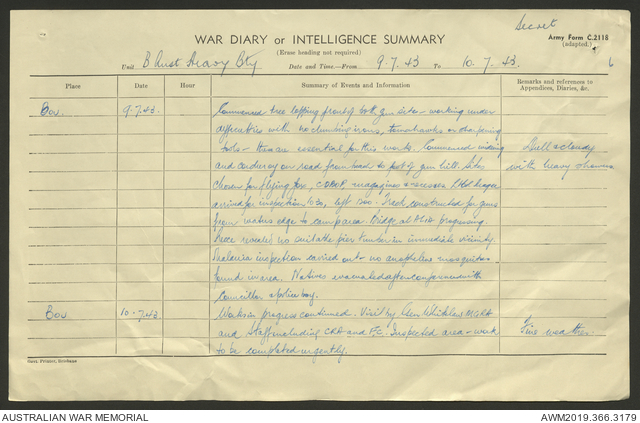 Secret
WAR DIARY or INTELLIGENCE SUMMARY
Army Form C.2118
(adapted.)
(Erase heading not required)
6
Unit B Aust Heavy Bty Date and Time—From 9.7.43 To 10.7.43.
Place Date Hour Summary of Events and Information Remarks and references to Appendices, Diaries, &c.
9.7.43. Commenced tree lopping front of both gun sites - working under
difficulties with no climbing irons, tomahawks or sharpening
tools - these are essential for this work. Commenced widening
and corduroy on road from to foot of gun hill. Sites
Dull & cloudy
with heavy showers
chosen for flying fox, magazines
arrived for inspection left Track constructed for guns
from waters edge to camp area. Bridge at progressing.
no suitable pier timber in immediate vicinity.
Malaria inspection carried out - no anopheles mosquitoes
found in area. Natives evacuated after conference with
Councillor & police boy.
10.7.43 Works in progress continued. Visit by Gen MGRA
and Staff including CRA and F.C. Inspected area & work
to be completed urgently.
Fine weather.
Govt. Printer, Brisbane
AUSTRALIAN WAR MEMORIAL
AWM2019.366.3179